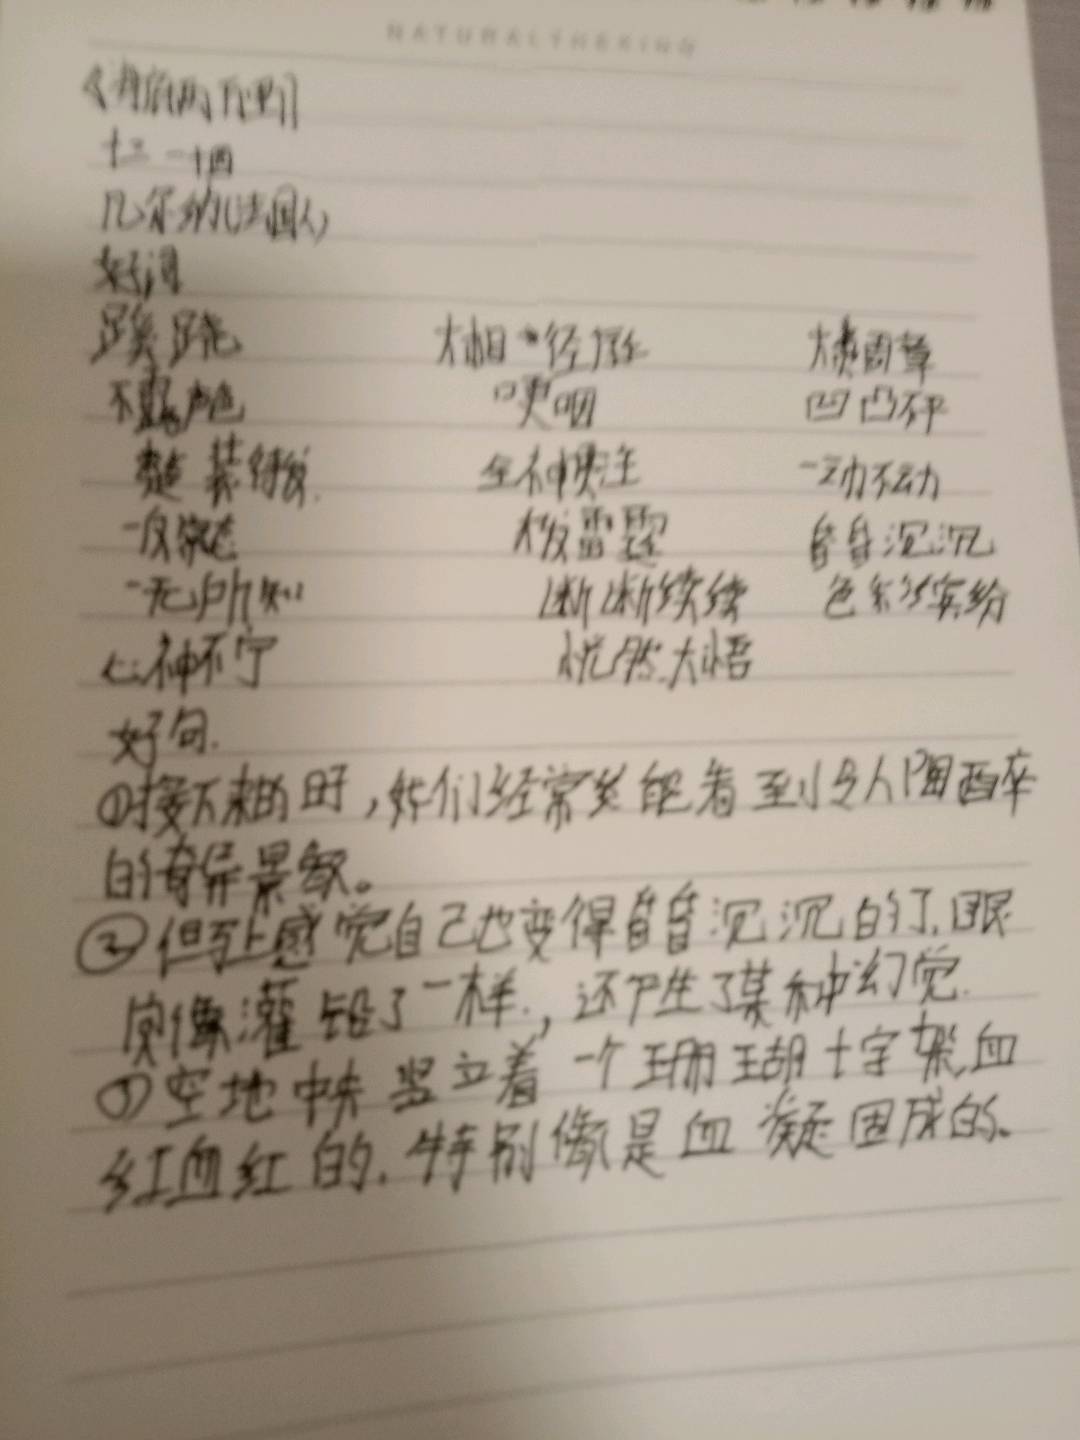 NATURALTHEKING
《海底两万里》
十三一十四
凡尔纳(法国人)
好词
蹊跷 大相径庭 大费周章
不露声色 哽咽 凹凸不平
整装待发 全神贯注 一动不动
一反常态 大发雷霆 昏昏沉沉
一无所知 断断续续 色彩缤纷
心神不宁 恍然大悟
好句.
①接下来的时,我们经常能看到令人陶醉
的奇异景象。
②但马上感觉自己也变得昏昏沉沉的了,眼
像灌铅了一样.,还产生了某种幻觉.
③空地中央竖立着一个珊瑚十字架,血
红血红的.特别像是血凝固成的.